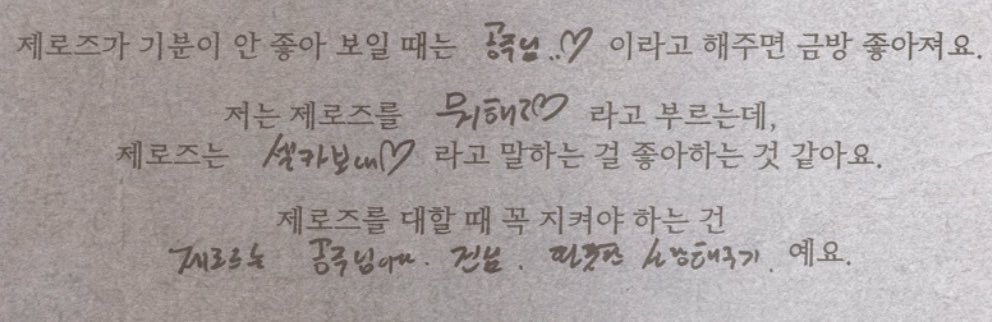 제로즈가 기분이 안 좋아 보일 때는 공주님..♡ 이라고 해주면 금방 좋아져요.
저는 제로즈를 뭐해?♡ 라고 부르는데,
제로즈는 셀카보내♡ 라고 말하는 걸 좋아하는 것 같아요.
제로즈를 대할 때 꼭 지켜야 하는 건
제로즈는 공주님 예요.